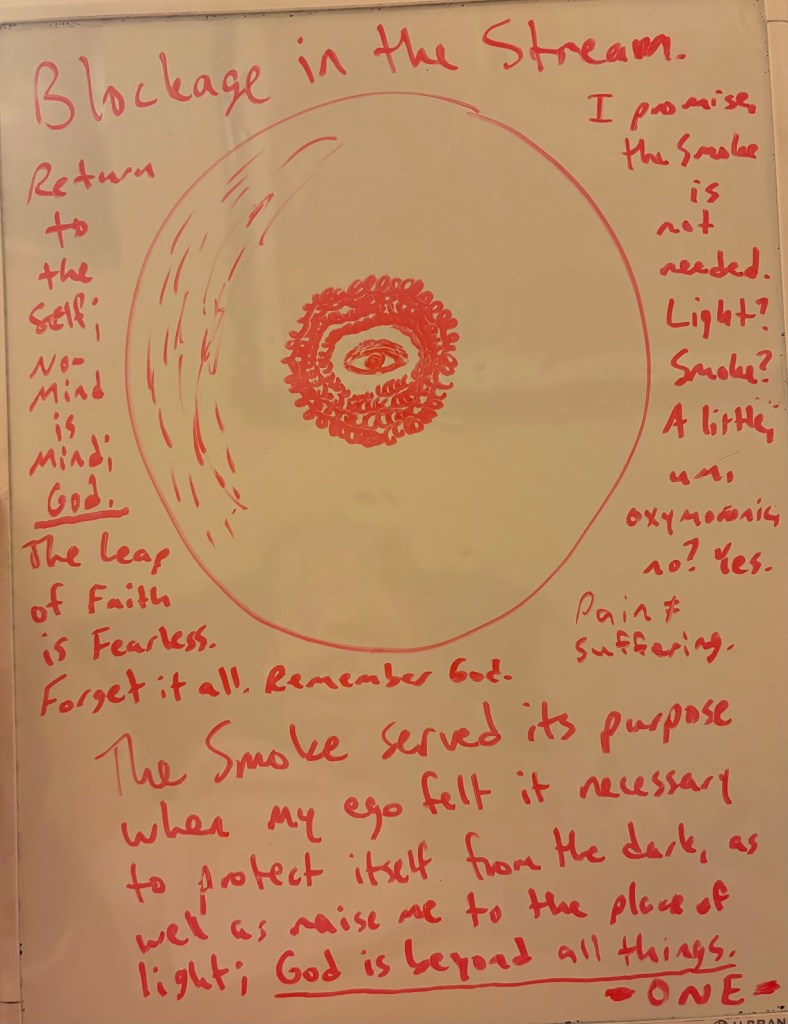 Blockage in the Stream.
Return
to
the
Self;
No-
Mind
is
Mind;
God.
The Leap
of Faith
is Fearless.
Forget it all. Remember God.
I promise,
the Smoke
is
not
needed.
Light?
Smoke?
A little,
um,
oxymoronic,
no? Yes.
Pain ≠
suffering.
The Smoke served its purpose
when my ego felt it necessary
to protect itself from the dark, as
well as raise me to the place of
light; God is beyond all things.
-ONE-